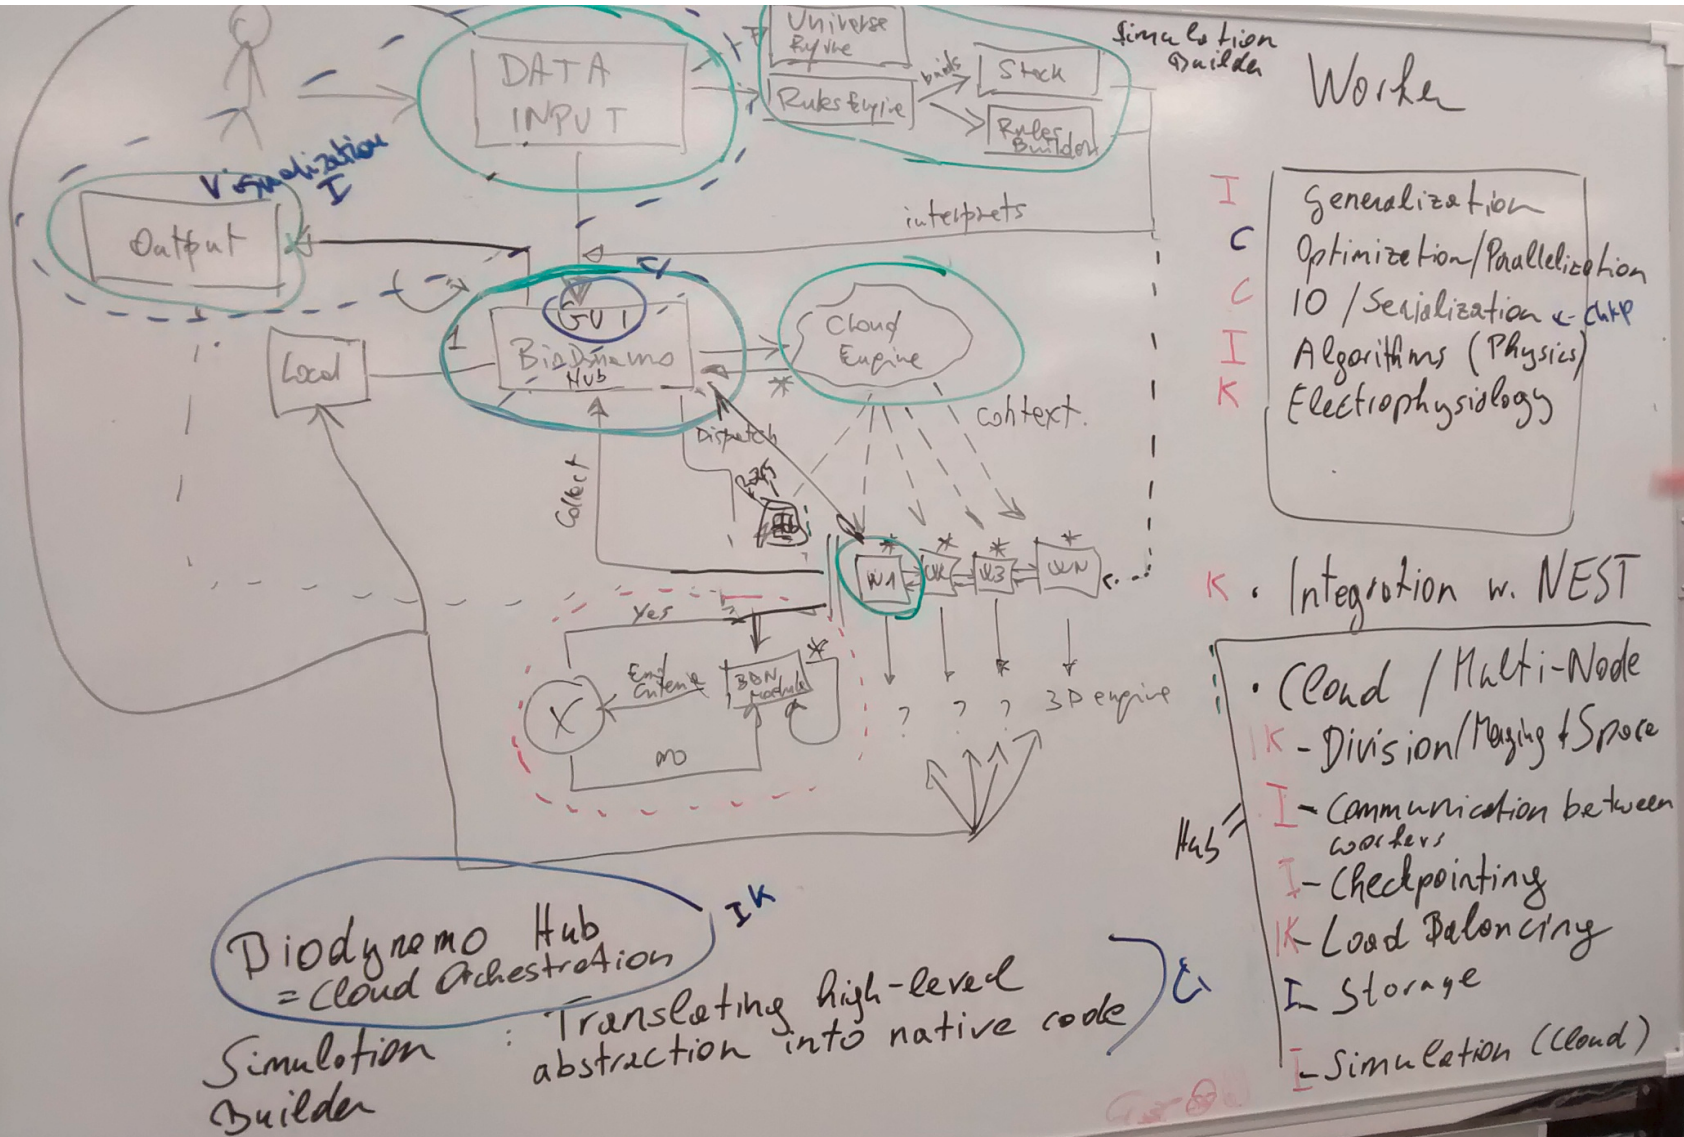 Universe
DATA
INPUT
Rules Engine
builds
Stack
Rules
Builder
Simulation
Builder
Visualization
I
Output
interprets
GUI
1
BioDynamo
Hub
*
Cloud
Engine
Local
context.
Dispatch
Collect
* * * *
W1 W2 W3 WN
Yes
End
Criteria
BDN
Module
*
X
no
? ? ? 3D engine
*
Biodynamo Hub
= Cloud Orchestration
I K
Simulation
Builder
: Translating high-level
abstraction into native code
Worker
I Generalization
C Optimization/Parallelization
C IO/Serialization ← chkp
I Algorithms (Physics)
K Electrophysiology
K • Integration w. NEST
• Cloud / Multi-Node
K - Division/Merging of Space
I - Communication between
workers
Hub
I - Checkpointing
K - Load Balancing
I - Storage
I - Simulation (Cloud)